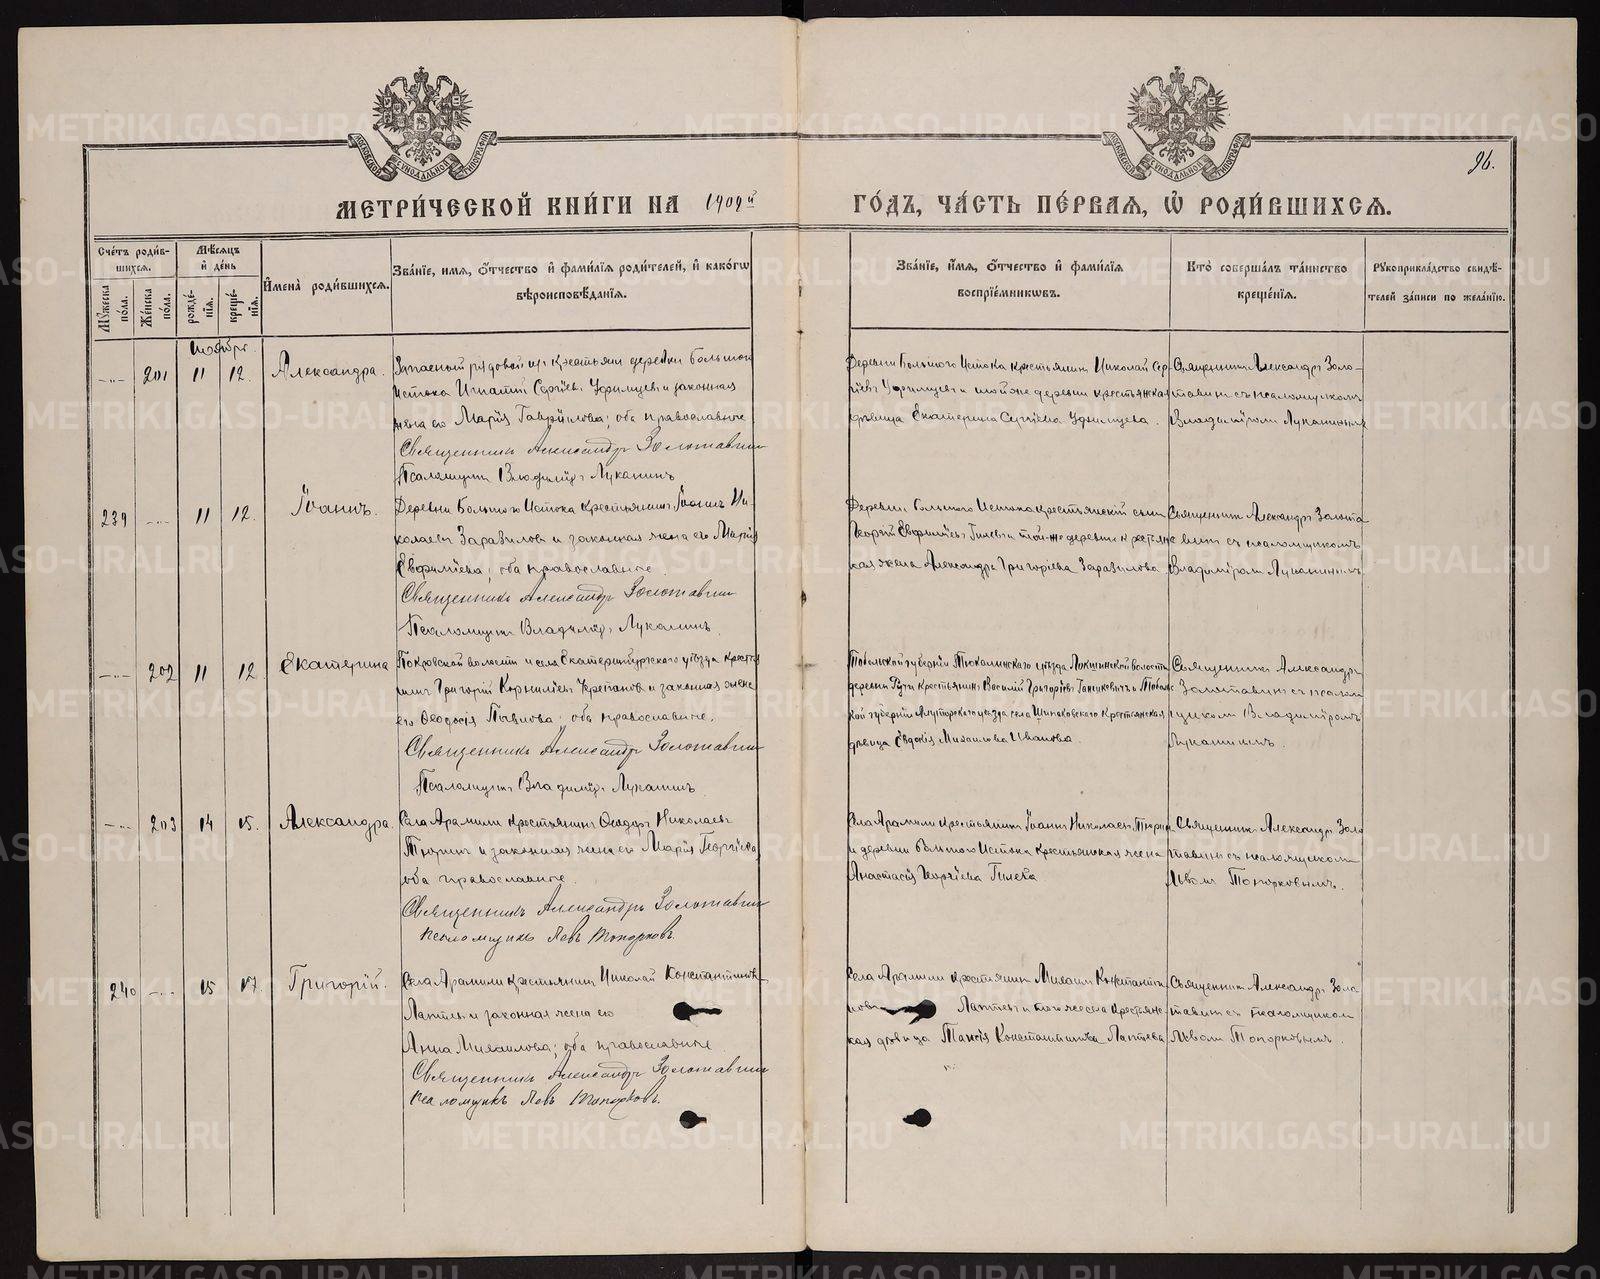 96.
МЕТРИ́ЧЕСКОЙ КНИ́ГИ НА 1909й
ГО́ДЪ, ЧА́СТЬ ПЕ́РВАЯ, Ѡ҆ РОДИ́ВШИХСЯ.
Сче́тъ роди́в-
шихся.
Мѣ́сяцъ
и҆ де́нь
Мꙋ́жеска по́ла.
Же́нска по́ла.
рожде́-
нїя.
креще́-
нїя.
И҆мена̀ роди́вшихся.
Зва́нїе, и҆мя, о҆́тчество и҆ фами́лїя роди́телей, и҆ како́гѡ
вѣроисповѣ́данїя.
Зва́нїе, и҆́мя, о҆́тчество и҆ фами́лїя
воспрїе́мникѡвъ.
Кто̀ соверша́лъ та́инство
креще́нїя.
Рꙋкоприкла́дство свидѣ́-
телей за́писи по жела́нїю.
Ноябрь.
201 11 12. Александра.
Запасный рядовой изъ крестьян деревни Большого
Истока Игнатій Сергіевъ и законная
жена его Марія Гавріилова; оба православные
Священникъ Александръ Золотавинъ
Псаломщикъ Владимiръ Луканинъ
Деревни Большого Истока крестьянинъ Николай Сер-
гіевъ и той же деревни крестьянская
дѣвица Екатерина Сергіева
Священникъ Александръ Золо-
тавинъ съ псаломщикомъ
Владиміромъ Луканинымъ
239 11 12. Іоаннъ.
Деревни Большого Истока крестьянинъ Іоаннъ Ни-
колаевъ Заразиловъ и законная жена его Марія
Евфиміева; оба православные.
Священникъ Александръ Золотавинъ
Псаломщикъ Владимiръ Луканинъ.
Деревни Большого Истока крестьянскій сынъ
Георгій Евфиміевъ Гилевъ и той-же деревни крестьянс
кая жена Александра Григоріева Заразилова
Священникъ Александръ Золота
винъ съ псаломщикомъ
Владиміромъ Луканинымъ
202 11 12. Екатерина
Покровской волости и села Екатеринбургскаго уѣзда крестья
нинъ Григорій Корниліевъ и законная жена
его Ѳеодосія; оба православные.
Священникъ Александръ Золотавинъ
Псаломщикъ Владимiръ Луканинъ
Тобольской губерніи Тюкалинскаго уѣзда волости
деревни крестьянинъ Василій Григоріевъ и Тоболь
ской губерніи уѣзда села крестьянская
дѣвица Евдокія Михаилова Иванова.
Священникъ Александръ
Золотавинъ съ псалом
щикомъ Владиміромъ
Луканинымъ.
203 14 15. Александра.
Села Арамили крестьянинъ Ѳеодоръ Николаевъ
Тюринъ и законная жена его Марія Георгіева,
оба православные.
Священникъ Александръ Золотавинъ
псаломщикъ Левъ Топорковъ.
Села Арамили крестьянинъ Іоаннъ Николаевъ Тюринъ
и деревни Большого Истока крестьянская жена
Анастасія Георгіева Гилева
Священникъ Александръ Золо
тавинъ съ псаломщикомъ
Львомъ Топорковымъ.
240 15 17. Григорій.
Села Арамили крестьянинъ Николай Константиновъ
Лаптевъ и законная жена его
Анна Михаилова; оба православные
Священникъ Александръ Золотавинъ
псаломщикъ Левъ Топорковъ.
Села Арамили крестьянинъ Михаилъ Константи
новъ Лаптевъ и того же села крестьянс-
кая дѣвица Таисія Константинова Лаптева
Священникъ Александръ Золо
тавинъ съ псаломщикомъ
Львомъ Топорковымъ.
METRIKI.GASO-URAL.RU